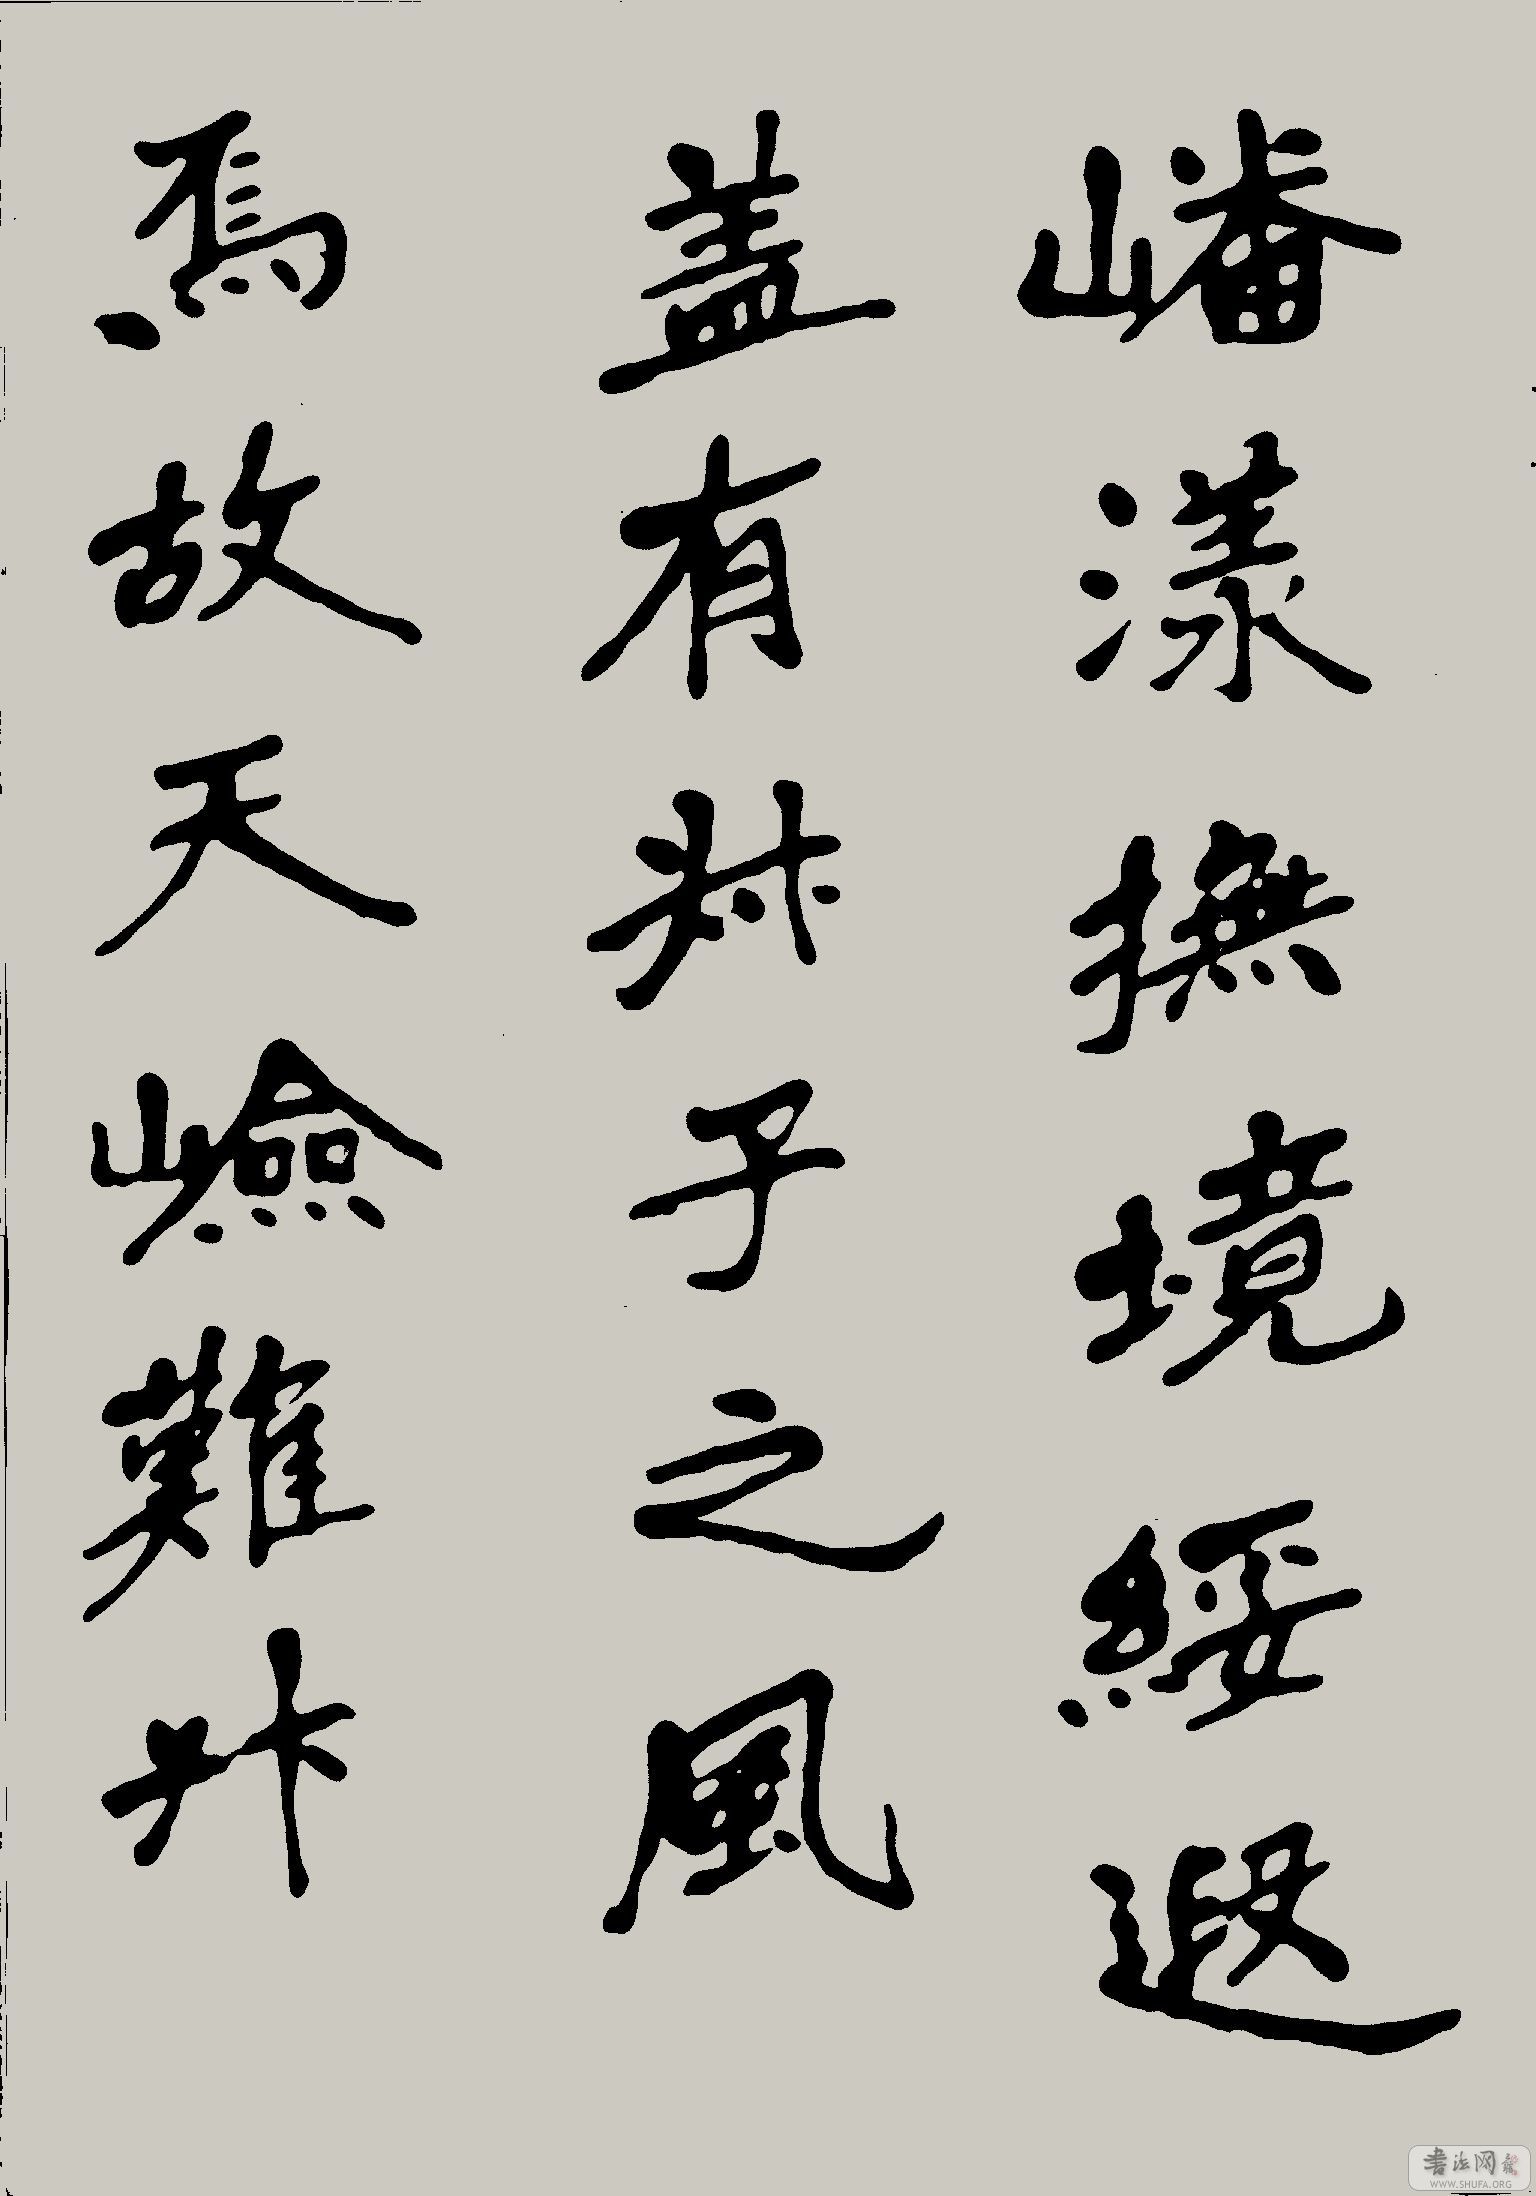 嶓漾撫境綏遐
盖有叔子之風
焉故天嶮難升
書法网
WWW.SHUFA.ORG